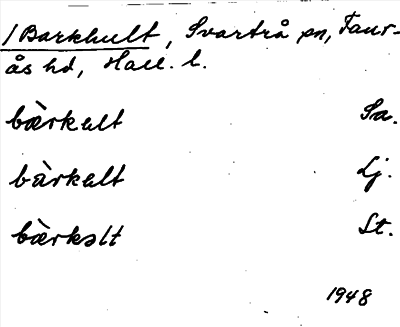 / Barkhult, Svartrå sn, Faur-
ås hd, Hall. l.
bæ̀rkult Sa.
bàrkult Lj.
bæ̀rkəlt St.
1948